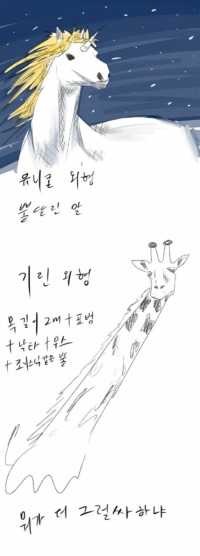 유니콘 외형
뿔달린 말
기린 외형
목길이 2m + 표범
+ 낙타 + 우스
+ 도깨비같은 뿔
뭐가 더 그럴싸하냐